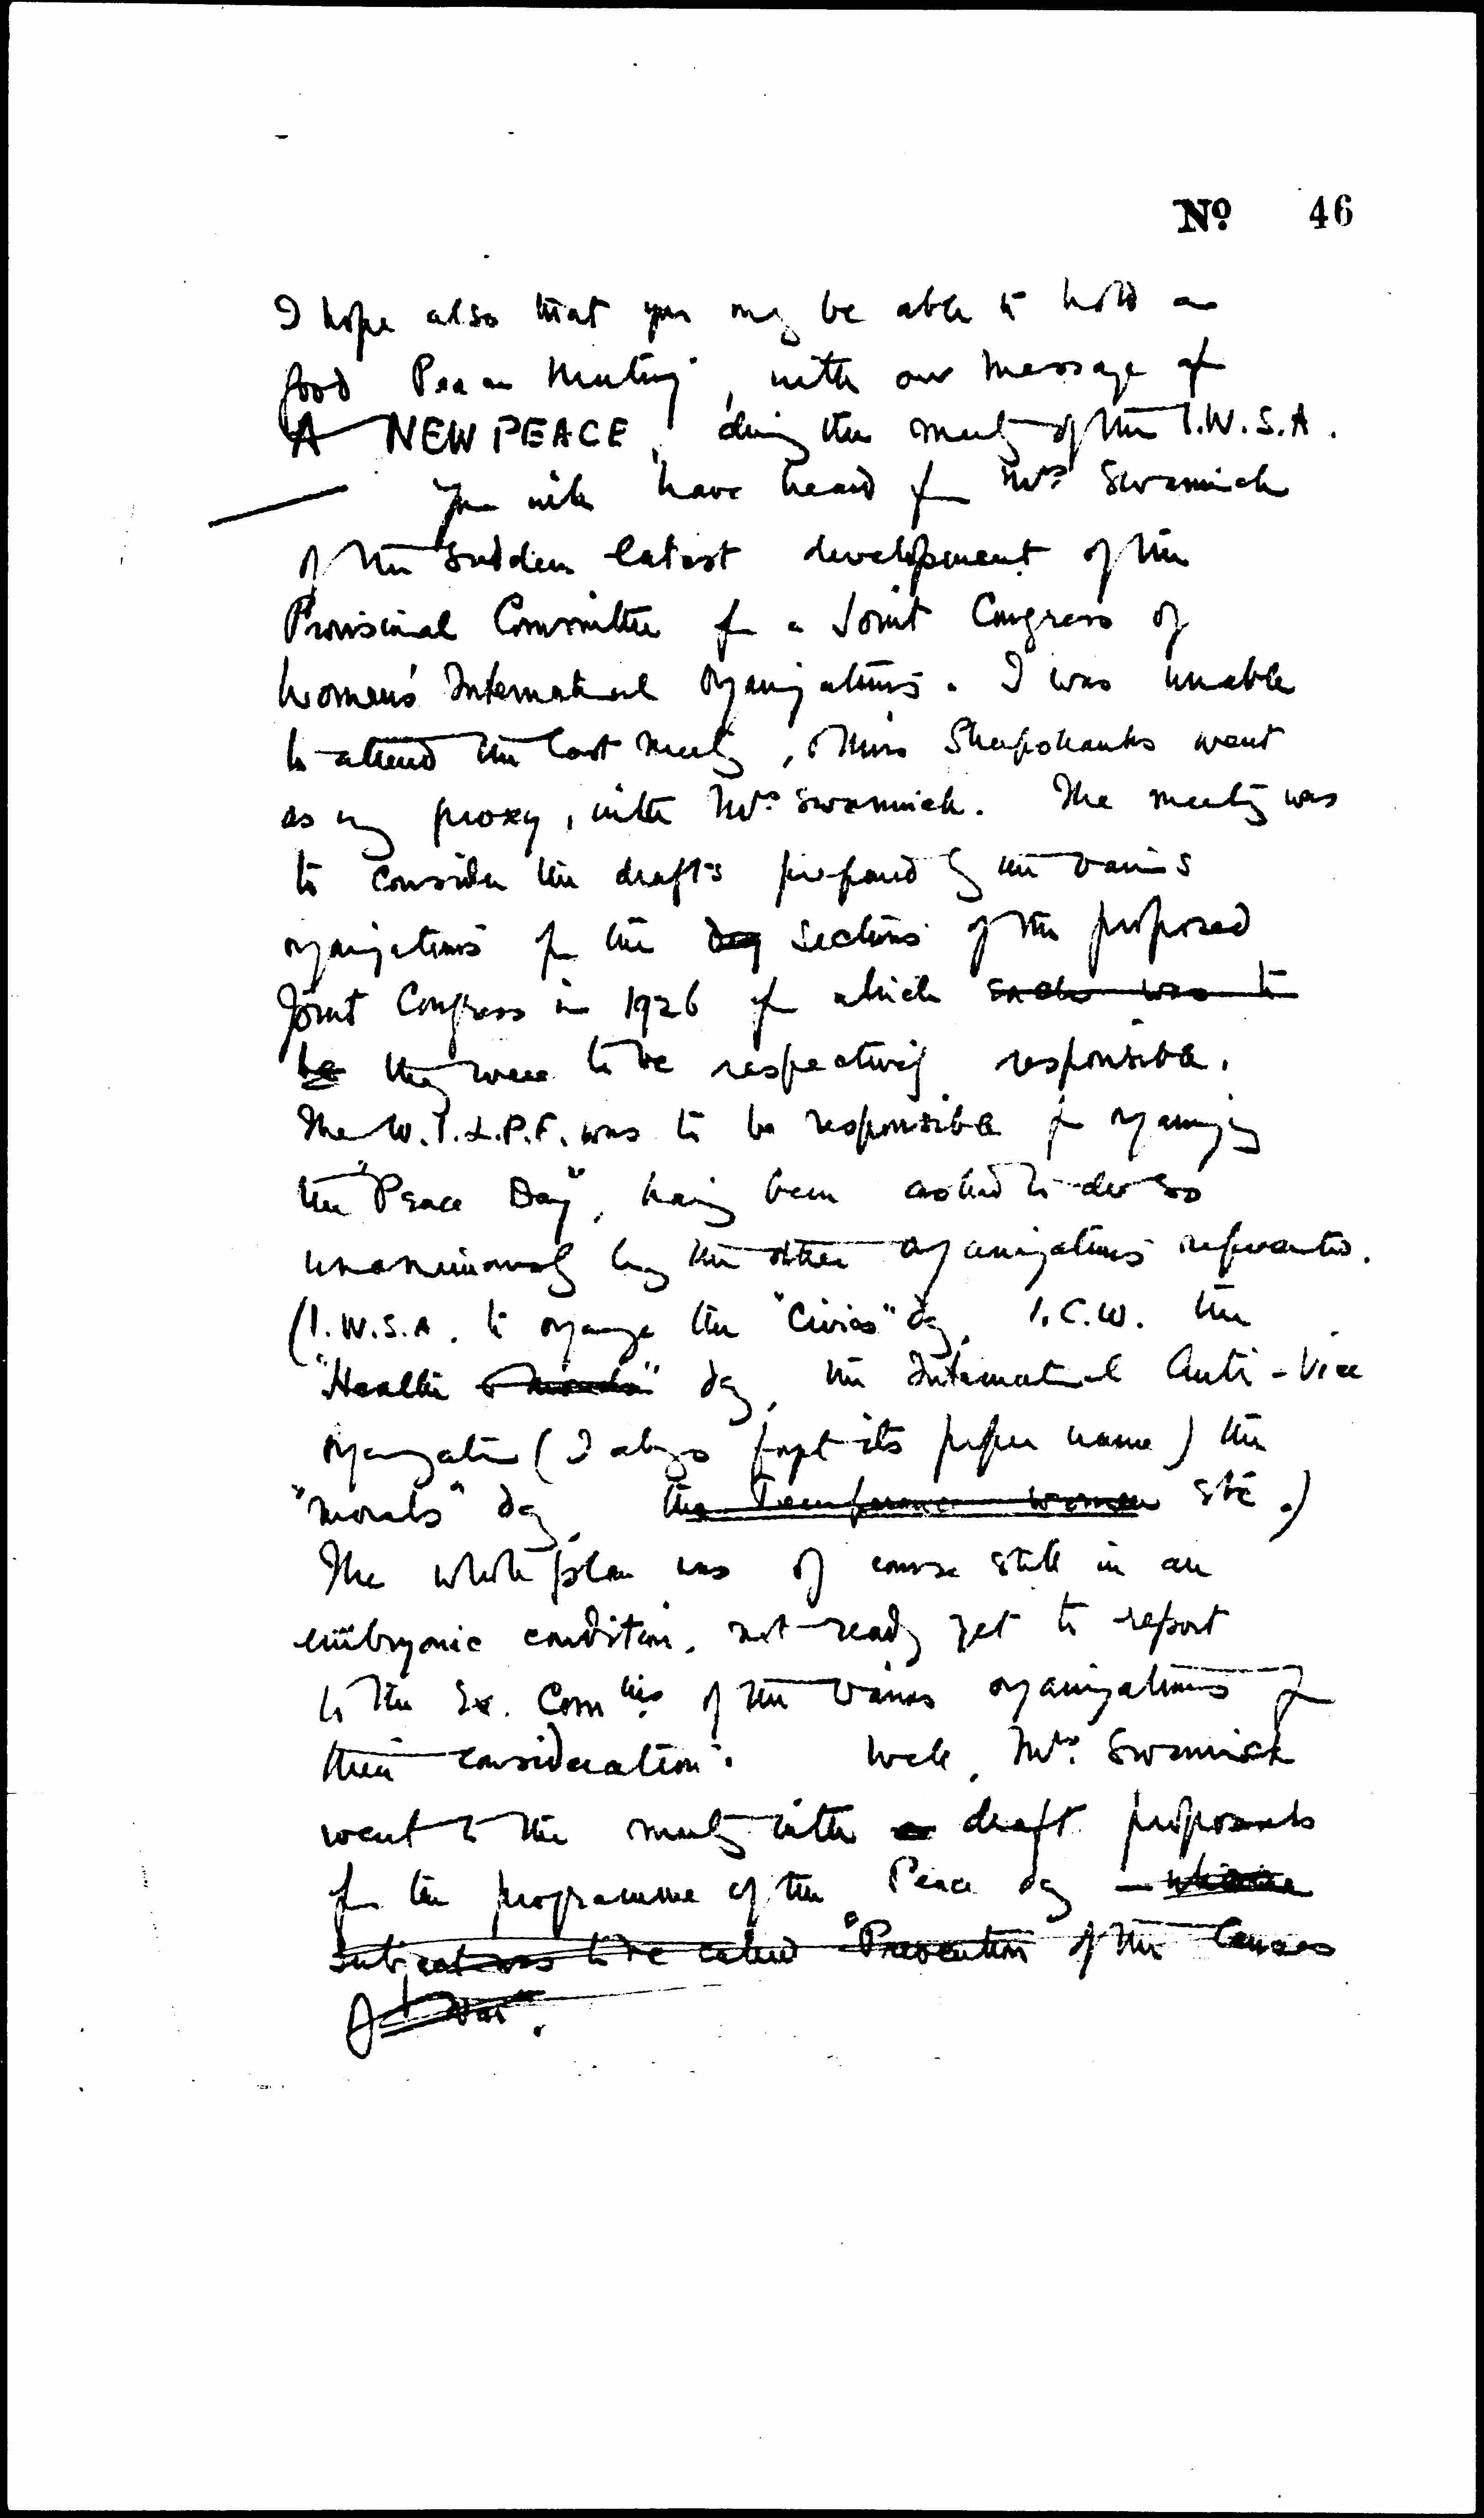 No. 46
I hope also that you may be able to hold a
good Peace Meeting, with our message of
A NEW PEACE, during the meeting of the I.W.S.A.
You will have heard from Mrs. Swanwick
of the sudden latest development of the
Provisional Committee for a Joint Congress of
Women's International Organizations. I was unable
to attend the last meeting, & Miss Sheepshanks went
as my proxy, with Mrs. Swanwick. The meeting was
to consider the drafts prepared by the various
organizations for the day sections of the proposed
Joint Congress in 1926 for which each was to
be they were to be respectively responsible.
The W.I.L.P.F. was to be responsible for organizing
the "Peace Day", having been asked to do so
unanimously by the other organizations represented.
(I.W.S.A. to organize the "Civics" day, I.C.W. the
"Health & morals" day, the International Anti-Vice
organization (I always forget its proper name) the
"Morals" day, the Temperance women etc.)
The whole plan was of course still in an
embryonic condition, not ready yet to report
to the Ex. Comtees of the various organizations for
their consideration. Well, Mrs. Swanwick
went to the meeting with a draft proposals
for the programme of the Peace day — whose
subject was to be called "Prevention of the Causes
of War".